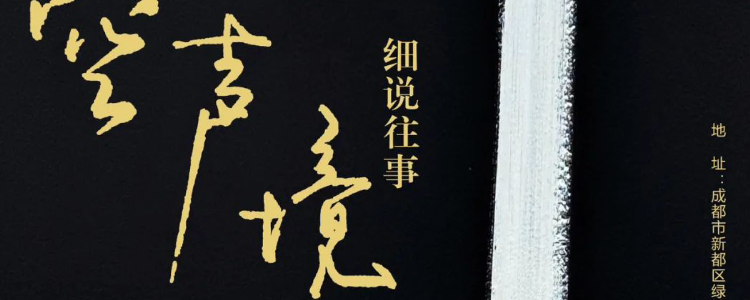 空声境
细说往事
地 址：成都市新都区绿